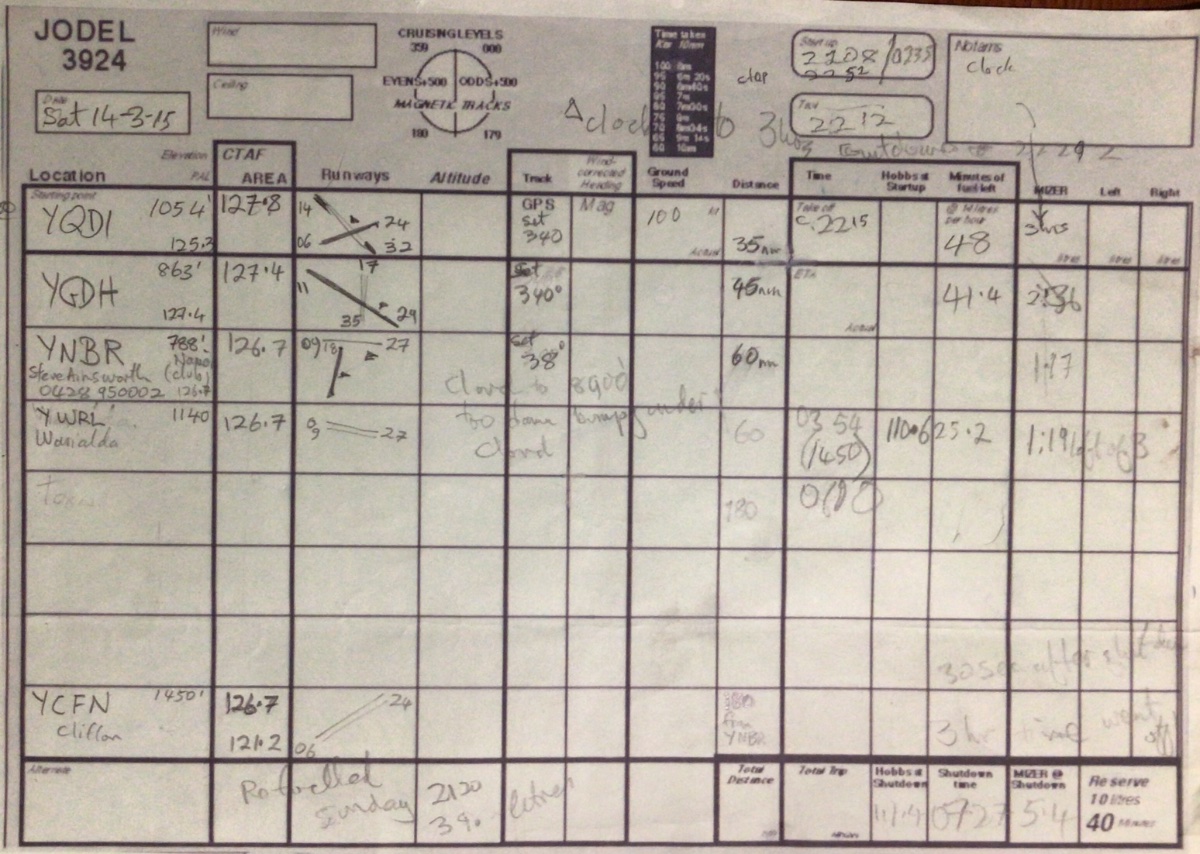 JODEL
3924
Date
Sat 14-3-15
Wind
Ceiling
CRUISING LEVELS
359 000
EVENS+500 ODDS+500
MAGNETIC TRACKS
180 179
Time taken
For 10nm
100 6m
95 6m 20s
90 6m40s
85 7m
80 7m30s
75 8m
70 8m34s
65 9m 14s
60 10m
Start up
2208/0235
2252
Taxi
2212
Notams
clock
clock to 3hrs
Location
Elevation
CTAF
AREA
Runways
Altitude
Track
Wind-corrected Heading
Ground Speed
Distance
Time
Hobbs at Startup
Minutes of fuel left
MIZER
Left
Right
Starting point
YQDI 1054'
125.2
127.8
14 24
06 32
GPS
set
340
Mag
100
Actual
35nm
Take off
c.2215
48
3hrs
litres litres litres
YGDH 863'
127.4
127.4
17
11
35 29
set
340°
45nm
ETA
Actual
41.4
YNBR 788'
Steve Ainsworth (club)
0428 950002 126.7
126.7
09 18 27
set
38°
60nm
1:17
cloud to 8900
too bumpy under
cloud
YWRL 1140
Warialda
126.7
09 27
60
0354
(1450)
110.6
25.2
1:19 left of 3
180
30 sec after shut down
YCFN 1450'
Clifton
126.7
121.2
24
06
from
YNBR
3 hr time went off
Alternate
Refuelled
Sunday
2120
39. litres
Total Distance
Total Trip
Hobbs at Shutdown
111.9
Shutdown time
0727
MIZER @ Shutdown
54
Reserve
10 litres
40 Minutes